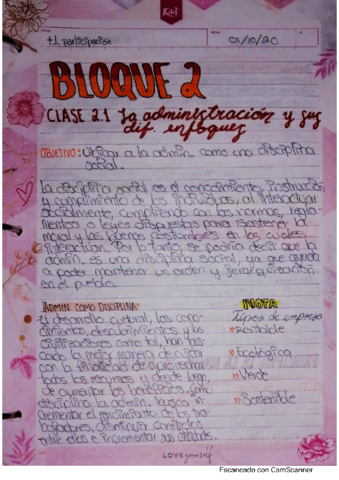 Kiut
+1 participación
01/10/20
BLOQUE 2
CLASE 2.1 La administración y sus
dif. enfoques
OBJETIVO: Ubicar a la admin. como una disciplina
social.
La disciplina social es el conocimiento, instrucción
y cumplimiento de los individuos, al interactuar
socialmente, cumpliendo con las normas, regla-
mentos o leyes dispuestas para sostener la
moral y las buenas costumbres en los cuales
intervienen. Por tanto se podría decir que la
admin. es una disciplina social, ya que ayuda
a poder mantener un orden y jerarquización
en el
ADMIN. COMO DISCIPLINA:
El desarrollo cultural, los cono-
cimientos, descubrimientos y las
civilizaciones como tal, han bus-
cado la mejor manera de
con la finalidad de aprovechar
todos los recursos y desde luego,
de aumentar los beneficios. Como
disciplina la admin. busca in-
crementar el rendimiento de los tra-
bajadores, disminuir conflictos
entre ellos e incrementar sus
NOTA:
Tipos de empresa
» Rentable
» Ecológica
» Verde
» Sostenible
LOVE yourself
Escaneado con CamScanner